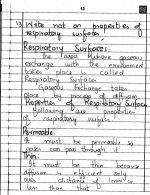 13
13 Write not on properties of
respiratory surfaces
Respiratory Surfaces:
The area where gaseous
exchange with the environment
takes place is called
Respiratory Surfaces.
Gaseous Exchange takes
place by process of diffusion.
Properties of Respiratory Surface
Following are properties
of respiratory surface!
Permeable:
It must be permeable so
gases can pass through it.
Thin:
It must be thin because
diffusion is efficient only
over distance of 1mm or
less than that